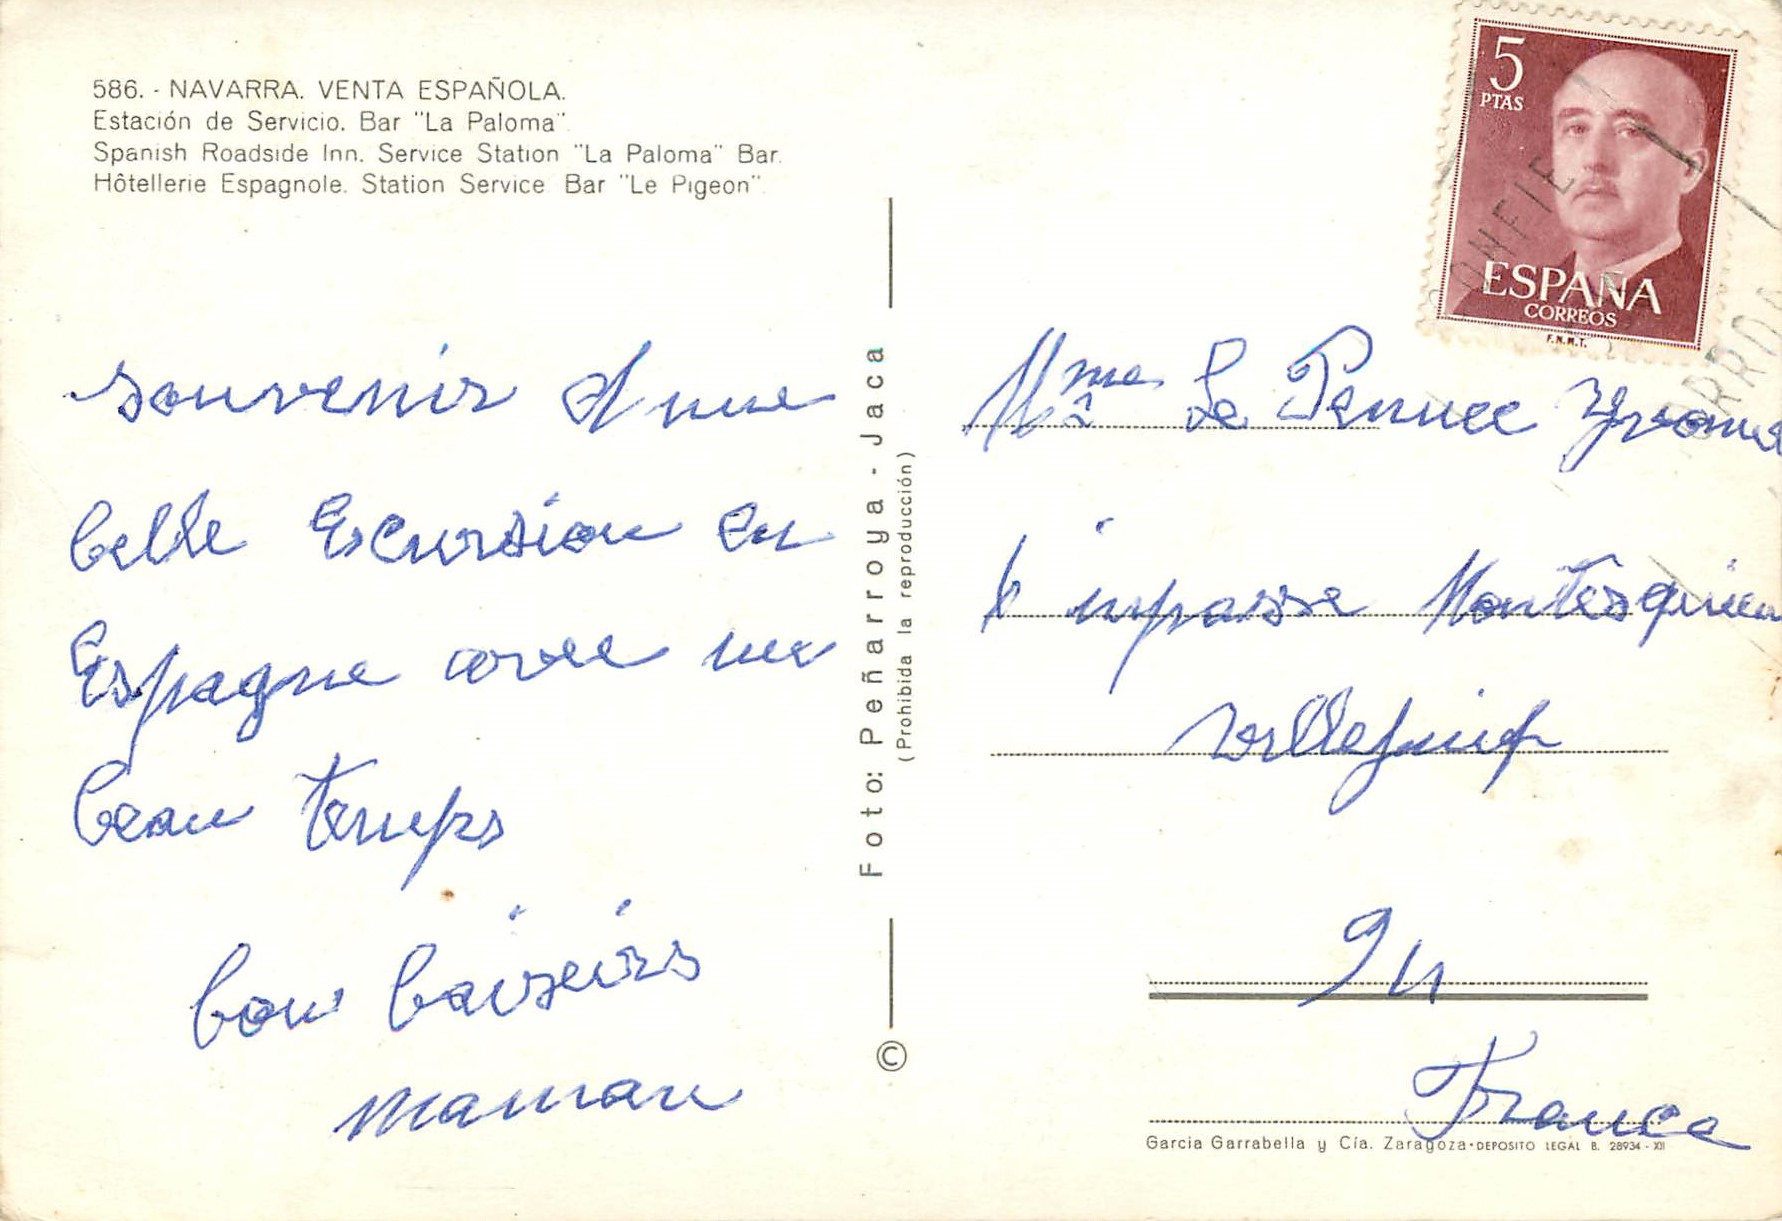 586. - NAVARRA. VENTA ESPAÑOLA.
Estación de Servicio. Bar "La Paloma".
Spanish Roadside Inn. Service Station "La Paloma" Bar.
Hôtellerie Espagnole. Station Service Bar "Le Pigeon".
souvenir d'une
belle Escursion en
Espagne avec un
beau temps
bon baiseirs
maman
Foto: Peñarroya - Jaca
(Prohibida la reproducción)
©
5
PTAS
ESPAÑA
CORREOS
F.N.M.T.
Mme Le Pennec Yvonne
6 impasse Montesquieu
Villejuif
94
France
Garcia Garrabella y Cía. Zaragoza·DEPOSITO LEGAL B. 28934 - XII